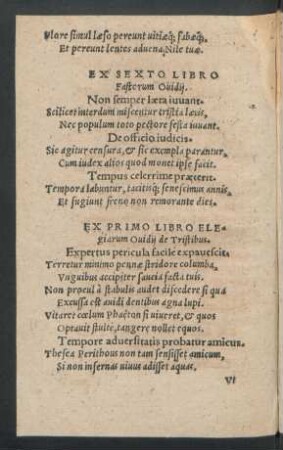 Flore simul læso pereunt uitiæq́; fabæq́;
Et pereunt lentes aduena Nile tuæ.
EX SEXTO LIBRO
Fastorum Ouidij.
Non semper læta iuuant.
Scilicet interdum miscentur tristia lætis,
Nec populum toto pectore festa iuuant.
De officio iudicis.
Sic agitur censura, & sic exempla parantur,
Cum iudex alios quod monet ipse facit.
Tempus celerrime præterit.
Tempora labuntur, tacitisq́; senescimus annis,
Et fugiunt freno non remorante dies.
EX PRIMO LIBRO ELE-
giarum Ouidij de Tristibus.
Expertus pericula facile expauescit.
Terretur minimo pennæ stridore columba,
Vnguibus accipiter saucia facta tuis.
Non procul à stabulis audet discedere si qua
Excussa est auidi dentibus agna lupi.
Vitaret cœlum Phaëton si uiueret, & quos
Optauit stultè, tangere nollet equos.
Tempore aduersitatis probatur amicus.
Thesea Perithous non tam sensisset amicum,
Si non infernas uiuus adisset aquas.
VI